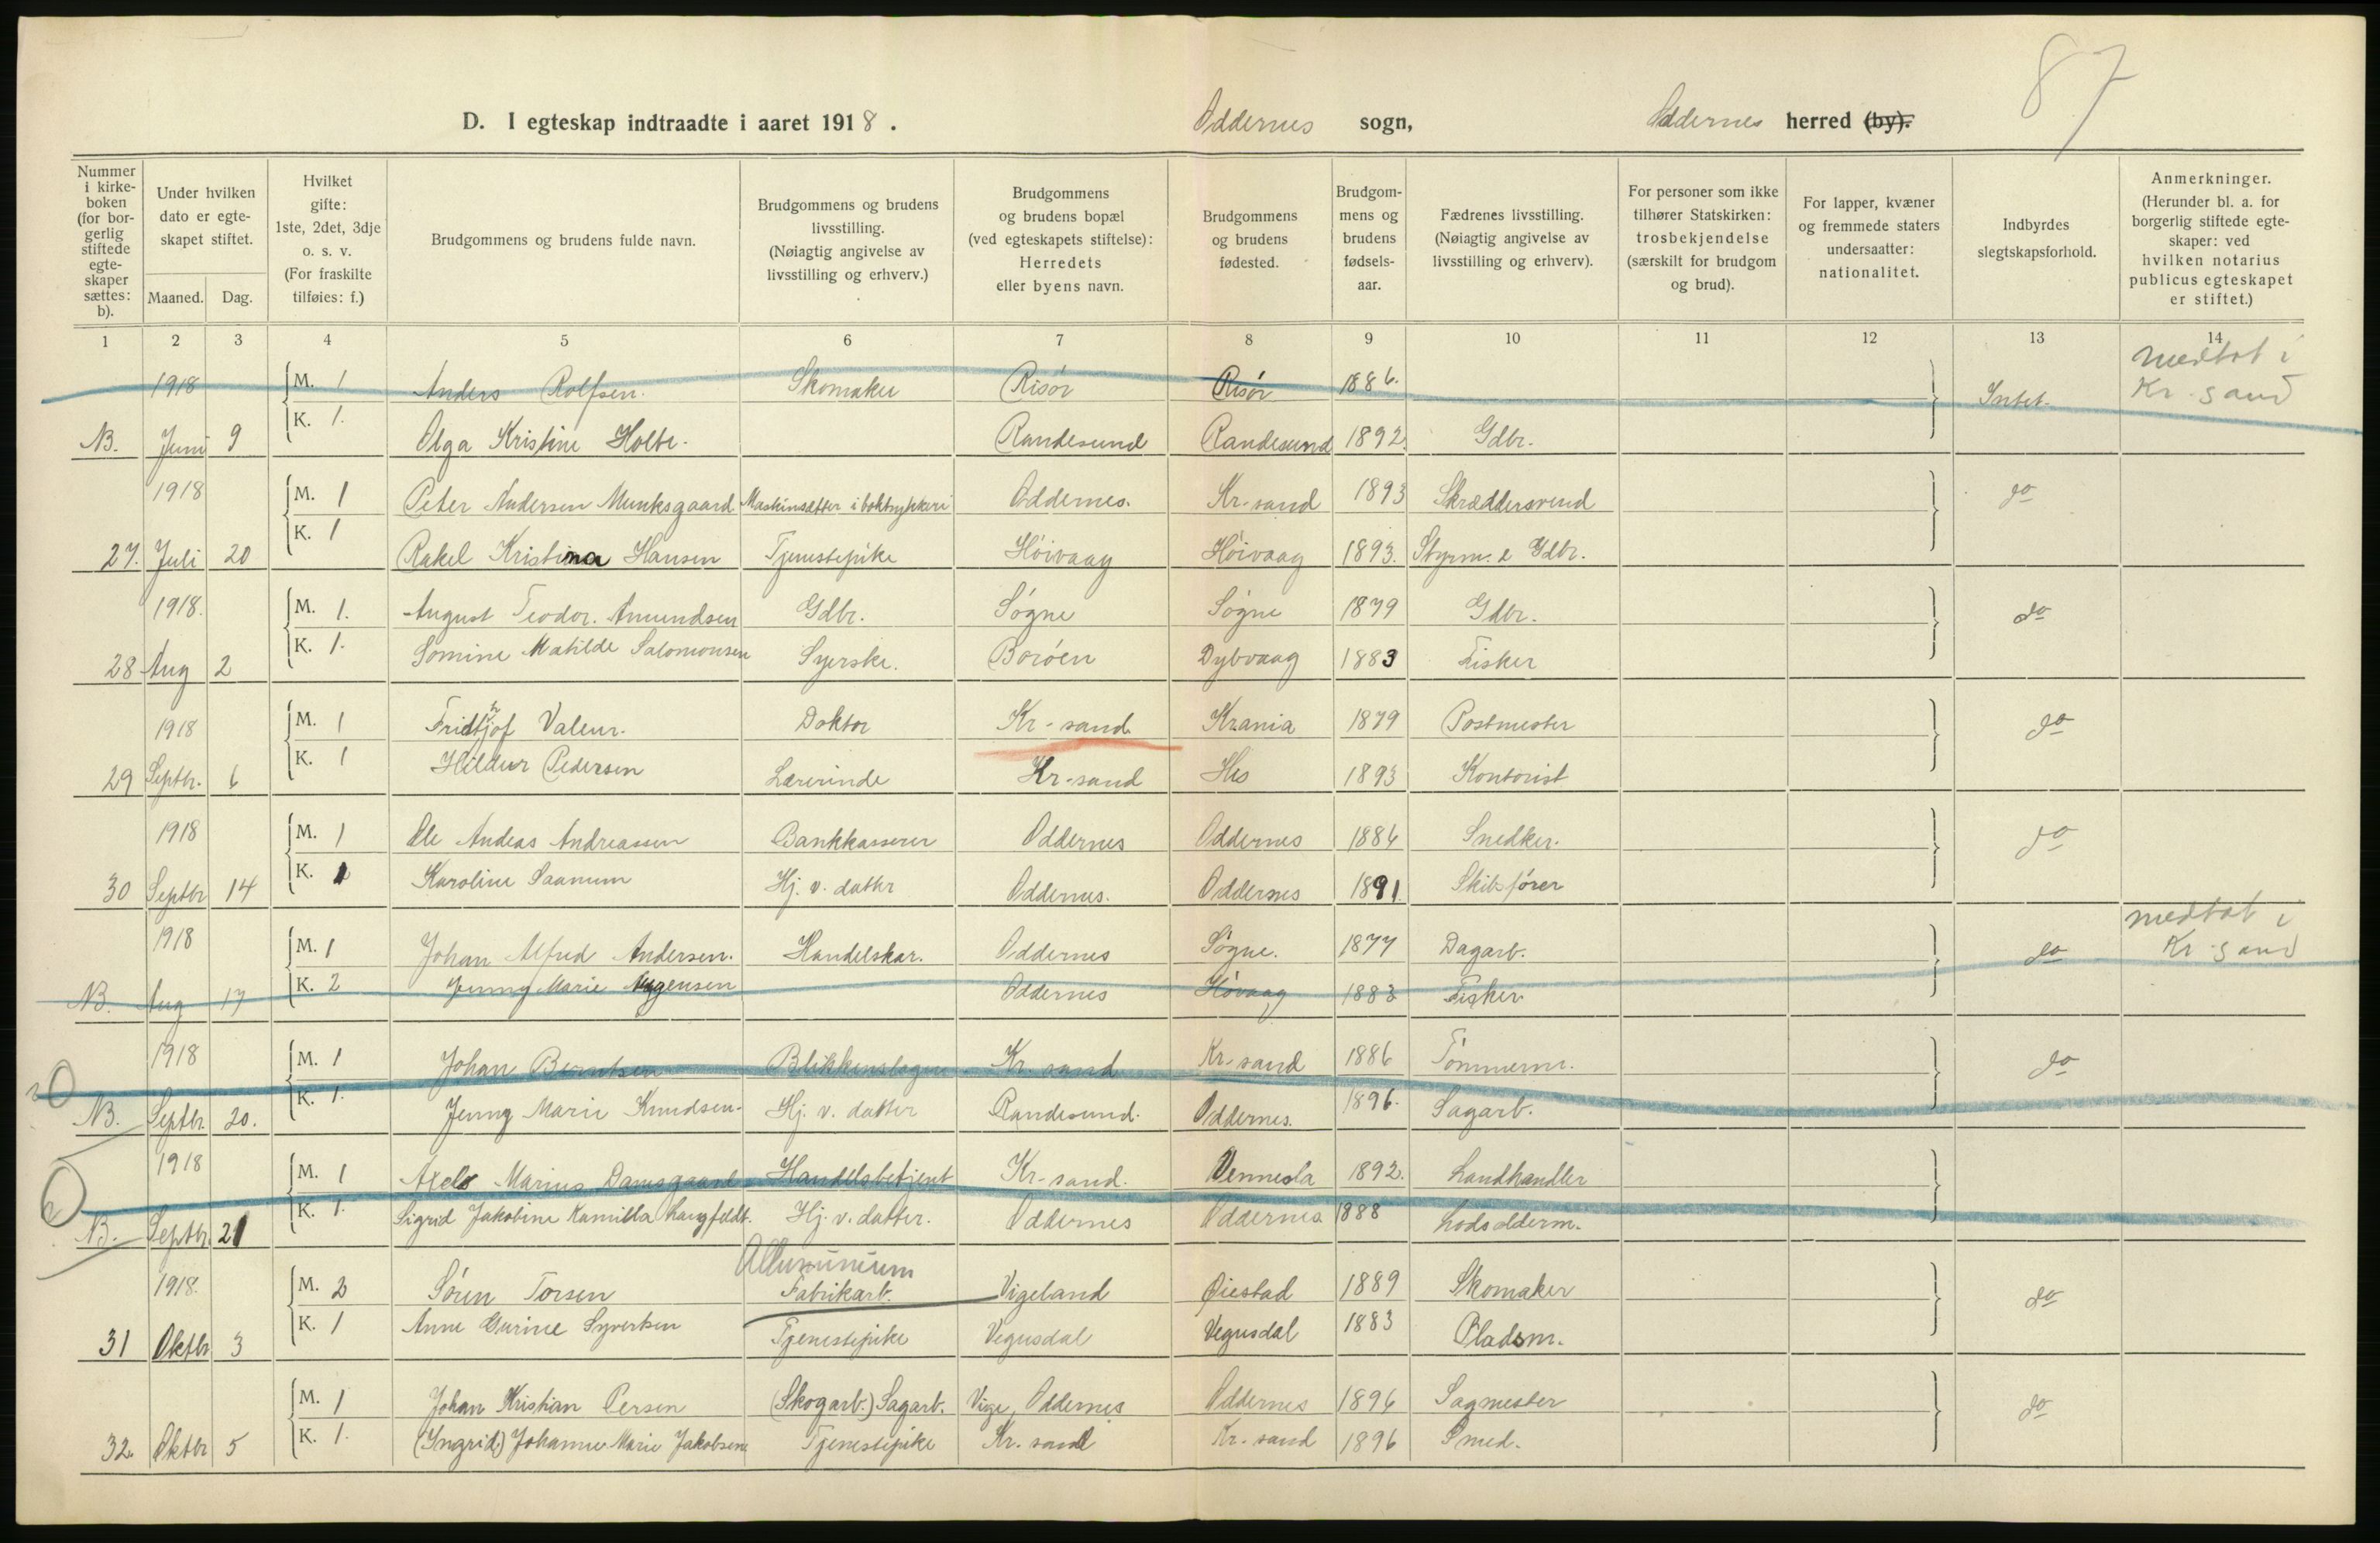 87
D. I egteskap indtraadte i aaret 1918. Oddernes sogn, Oddernes herred (by).
Nummer i kirkeboken (for borgerlig stiftede egteskaper sættes: b).
Under hvilken dato er egteskapet stiftet.
Maaned. Dag.
Hvilket gifte: 1ste, 2det, 3dje o. s. v. (For fraskilte tilføies: f.)
Brudgommens og brudens fulde navn.
Brudgommens og brudens livsstilling. (Nøiagtig angivelse av livsstilling og erhverv.)
Brudgommens og brudens bopæl (ved egteskapets stiftelse): Herredets eller byens navn.
Brudgommens og brudens fødested.
Brudgommens og brudens fødselsaar.
Fædrenes livsstilling. (Nøiagtig angivelse av livsstilling og erhverv).
For personer som ikke tilhører Statskirken: trosbekjendelse (særskilt for brudgom og brud).
For lapper, kvæner og fremmede staters undersaatter: nationalitet.
Indbyrdes slegtskapsforhold.
Anmerkninger. (Herunder bl. a. for borgerlig stiftede egteskaper: ved hvilken notarius publicus egteskapet er stiftet.)
1 2 3 4 5 6 7 8 9 10 11 12 13 14
1918 M. 1 Anders Rolfsen. Skomaker Risør Risør 1886. Intet. medtat i Kr. sand
NB. Juni 9 K. 1. Olga Kristine Holte. Randesund Randesund 1892. Gdbr.
1918 M. 1 Peter Andersen Munksgaard Maskinsætter i boktrykkeri Oddernes. Kr-sand 1893 Skræddersvend do
27. Juli 20 K. 1 Rakel Kristina Hansen Tjenestepike Høivaag Høivaag 1893. Styrm. & Gdbr.
1918. M. 1. August Teodor. Amundsen Gdbr. Søgne Søgne 1879 Gdbr. do
28 Aug 2 K. 1. Somine Matilde Salomonsen Syerske. Borøen Dybvaag 1883 Fisker
1918 M. 1 Fridtjof Valeur. Doktor Kr-sand. Krania 1879 Postmester do
29 Septbr. 6 K. 1 Hildur Pedersen Lærerinde Kr-sand His 1893 Kontorist
1918 M. 1 Ole Andeas Andreassen Bankkasserer Oddernes Oddernes 1886 Snedker. do
30 Septbr 14 K. 1 Karoline Saanum Hj. v. datter Oddernes. Oddernes 1891. Skibsfører
1918 M. 1 Johan Alfred Andersen. Handelskar. Oddernes Søgne. 1877 Dagarb. do medtat i Kr. sand
NB. Aug 17 K. 2 Jenny Marie Mygensen Oddernes Høvaag 1883 Fisker.
1918 M. 1 Johan Berntsen Blikkenslager Kr. sand Kr-sand 1886 Tømmerm. do
NB. Septbr. 20. K. 1. Jenny Marie Knudsen. Hj. v. datter Randesund. Oddernes. 1896. Sagarb.
1918 M. 1 Axels Marius Damsgaard Handelsbetjent Kr-sand. Vennesla 1892. Landhandler
NB. Septbr. 21 K. 1. Sigrid Jakobine Kamilla Langfeldt. Hj. v. datter. Oddernes Oddernes 1888 Lodsolderm.
Alluminium
1918. M. 2 Søren Torsen Fabrikarb. Vigeland Øiestad 1889 Skomaker do
31 Oktbr 3 K. 1 Anne Gurine Syvertsen Tjenestepike Vegusdal Vegusdal 1883 Pladsm.
M. 1 Johan Kristian Persen (Skogarb.) Sagarb. Vige, Oddernes Oddernes 1896 Sagmester do
32. Oktbr 5 K. 1. (Yngrid) Johanne Marie Jakobsen Tjenestepike Kr. sand Kr. sand 1896 Smed.